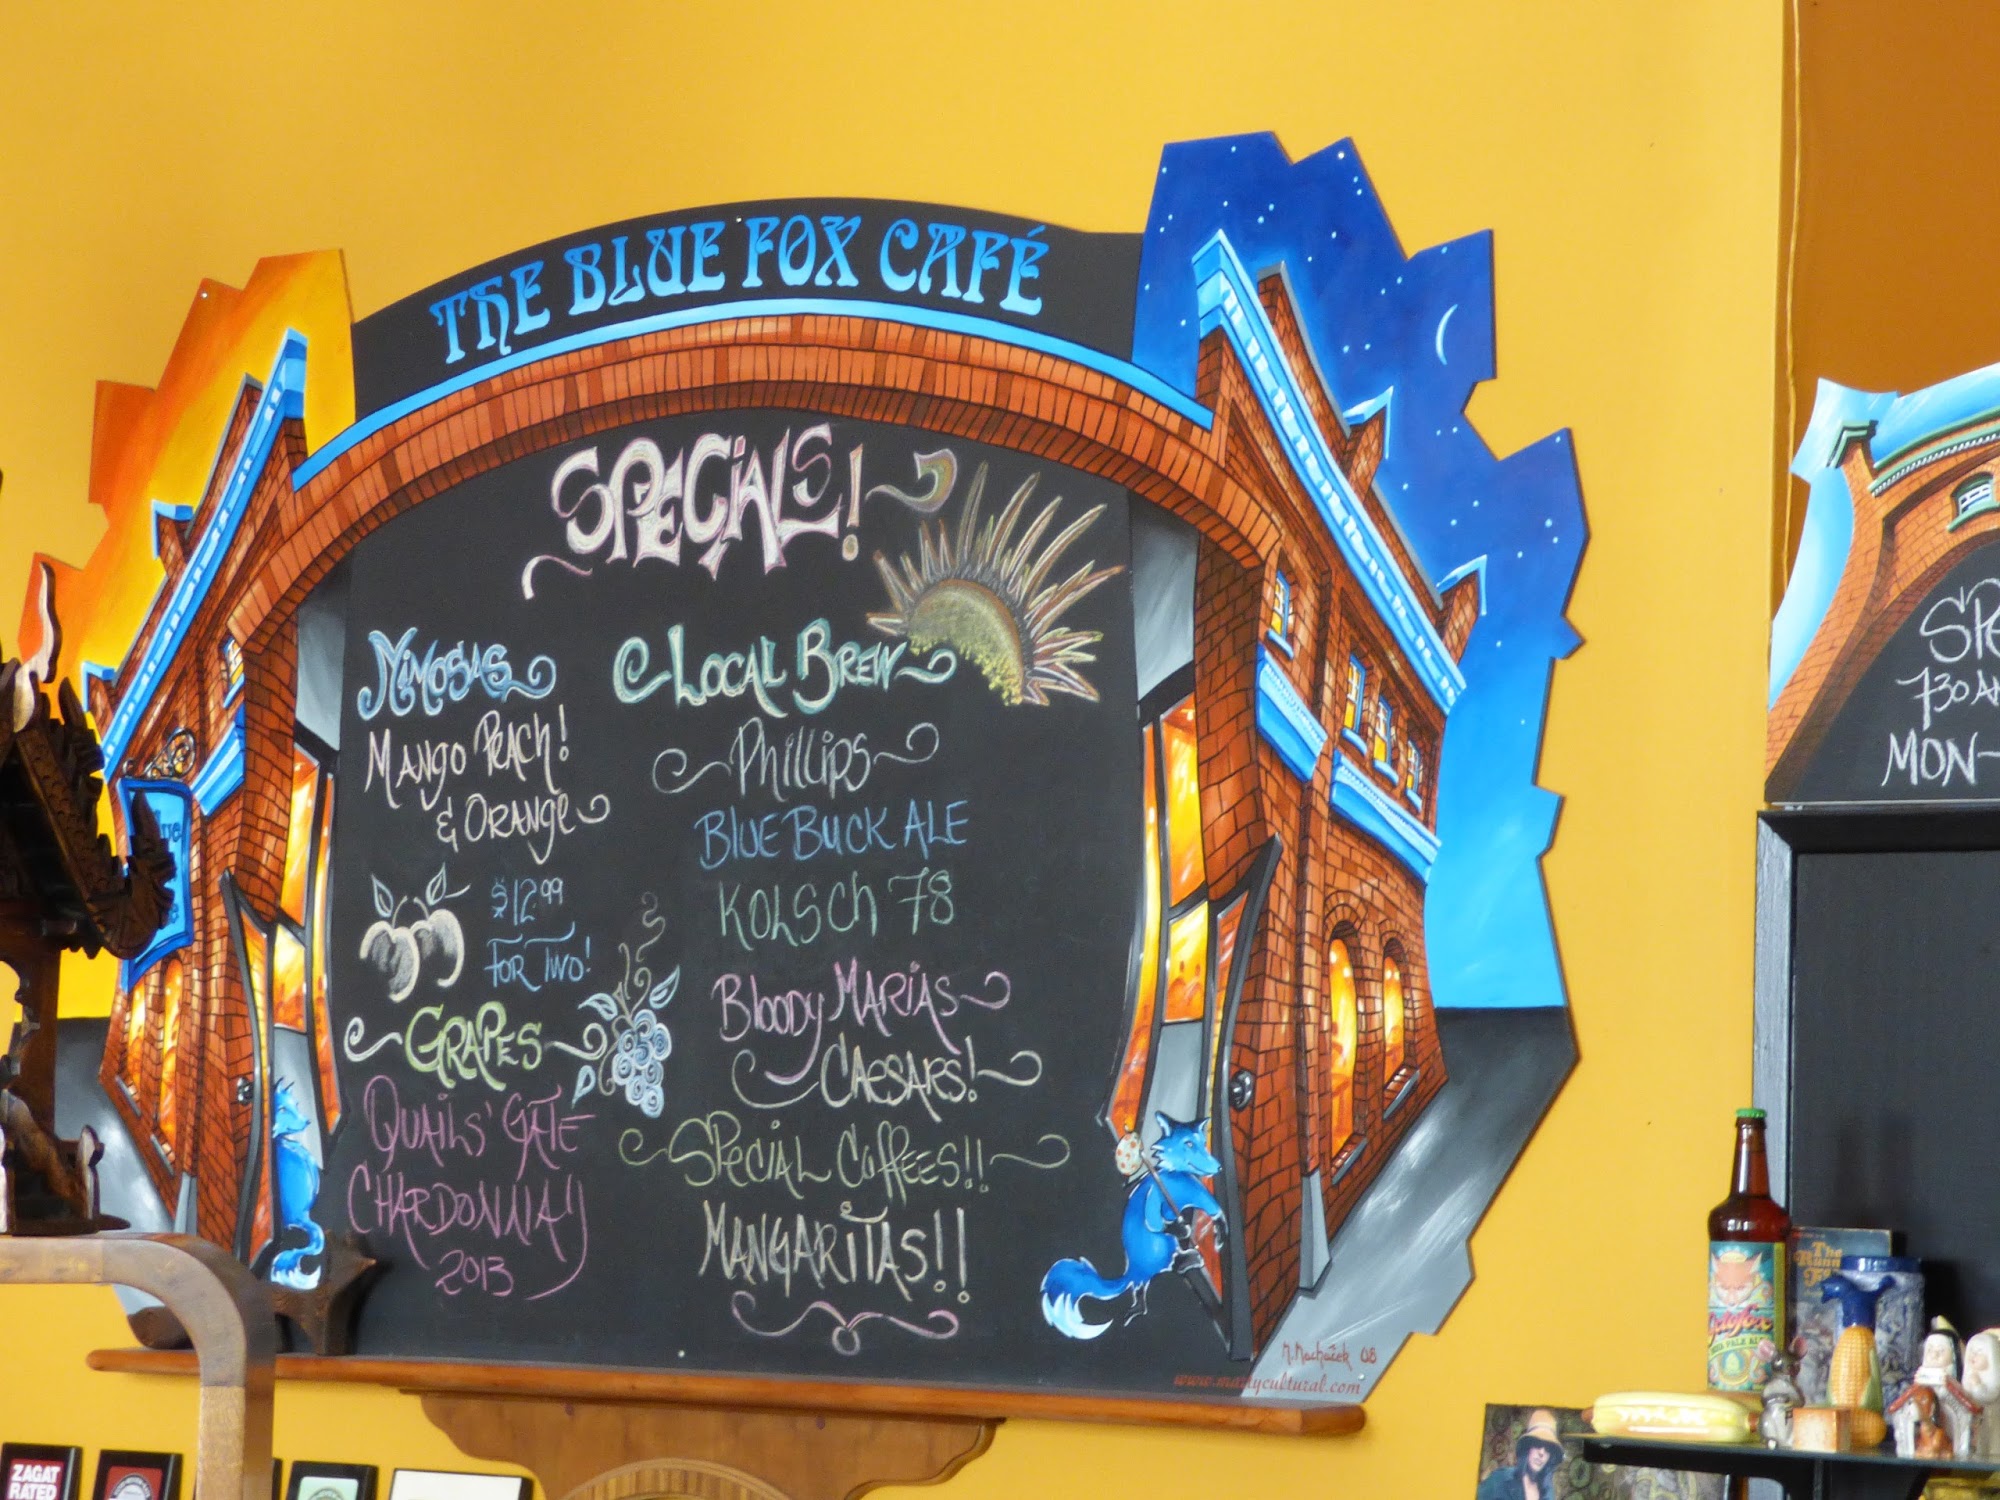 THE BLUE FOX CAFÉ
SPECIALS!
MIMOSAS
MANGO PEACH!
& ORANGE
$12.99
FOR TWO!
GRAPES
QUAILS' GATE
CHARDONNAY
2013
LOCAL BREW
Phillips
BLUE BUCK ALE
KOLSCH 78
Bloody MARIAS
CAESARS!
SPECIAL COFFEES!!
MANGARITAS!!
M. Machacek 08
www.martycultural.com
730 A
MON-
ZAGAT
RATED
The